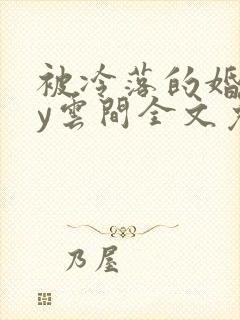 被冷落的婚
y雲間全文
乃屋